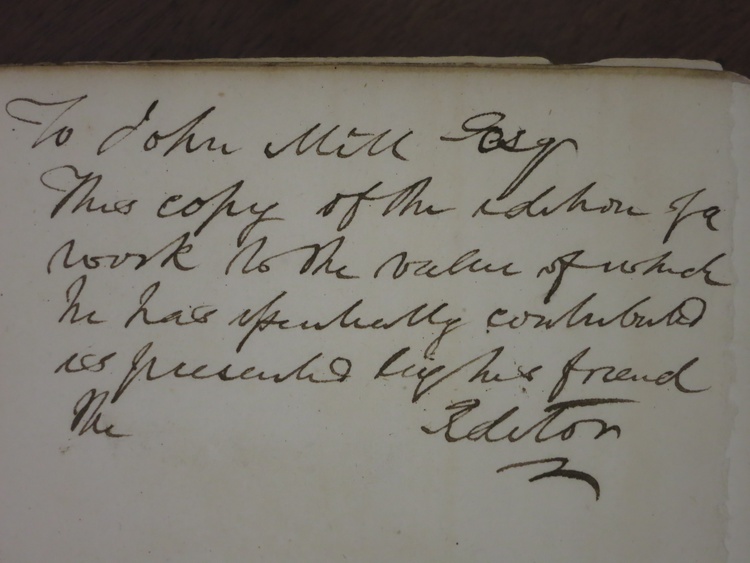 To John Mill Esq
This copy of the edition of a
work to the value of which
he has essentially contributed
is presented by his friend
the Editor